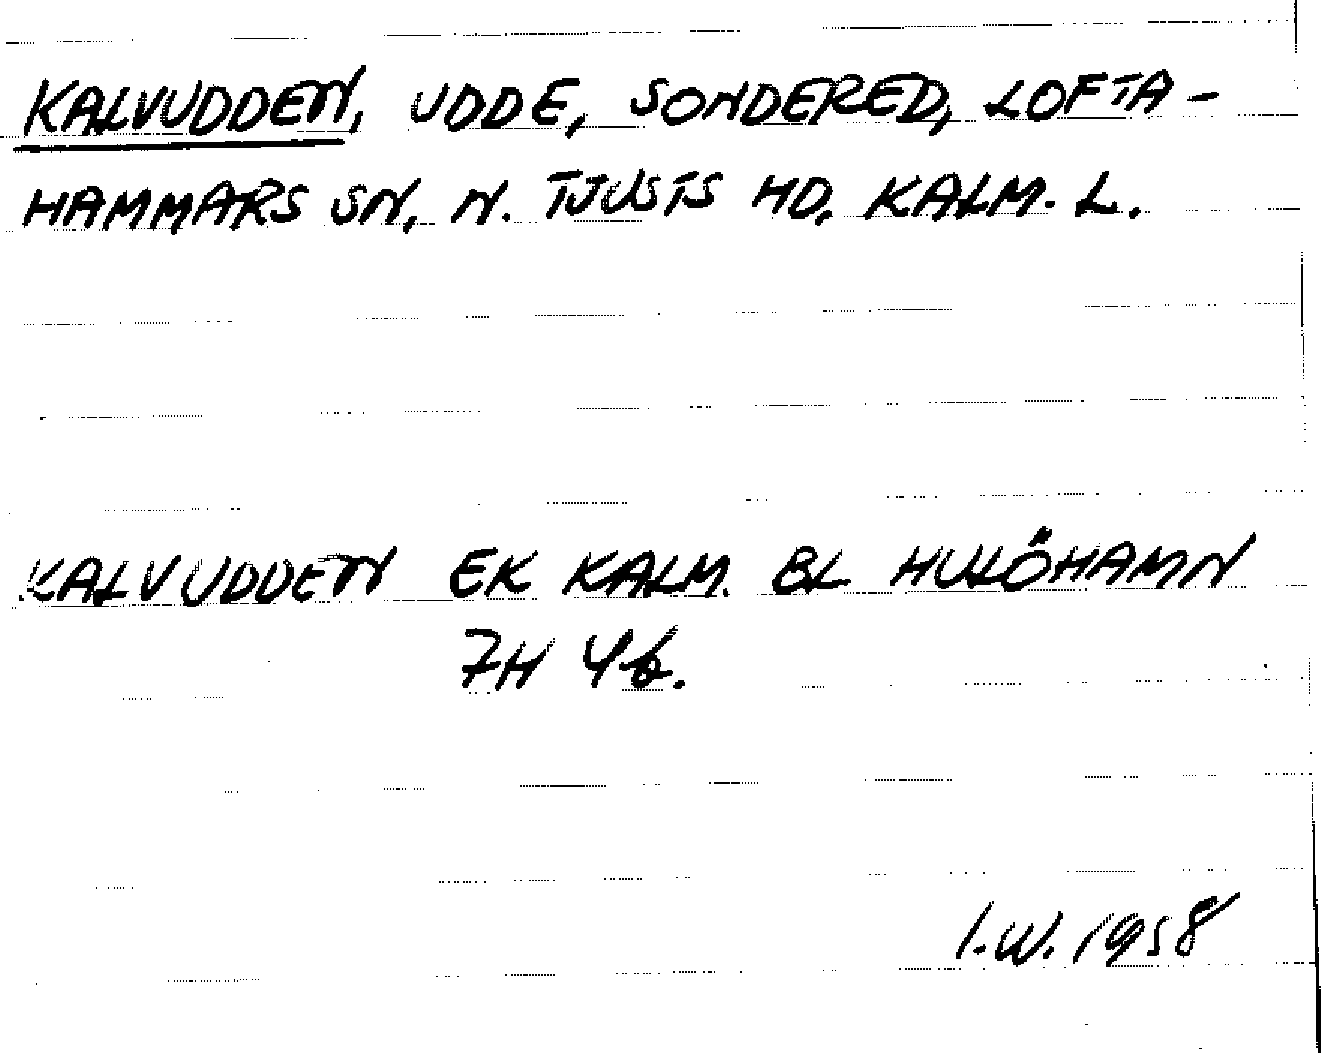 KALVUDDEN, UDDE, SONDERED, LOFTA-
HAMMARS SN, N. TJUSTS HD, KALM. L.
KALVUDDEN EK KALM. BL HULÖHAMN
7H 4b.
I.W. 1958